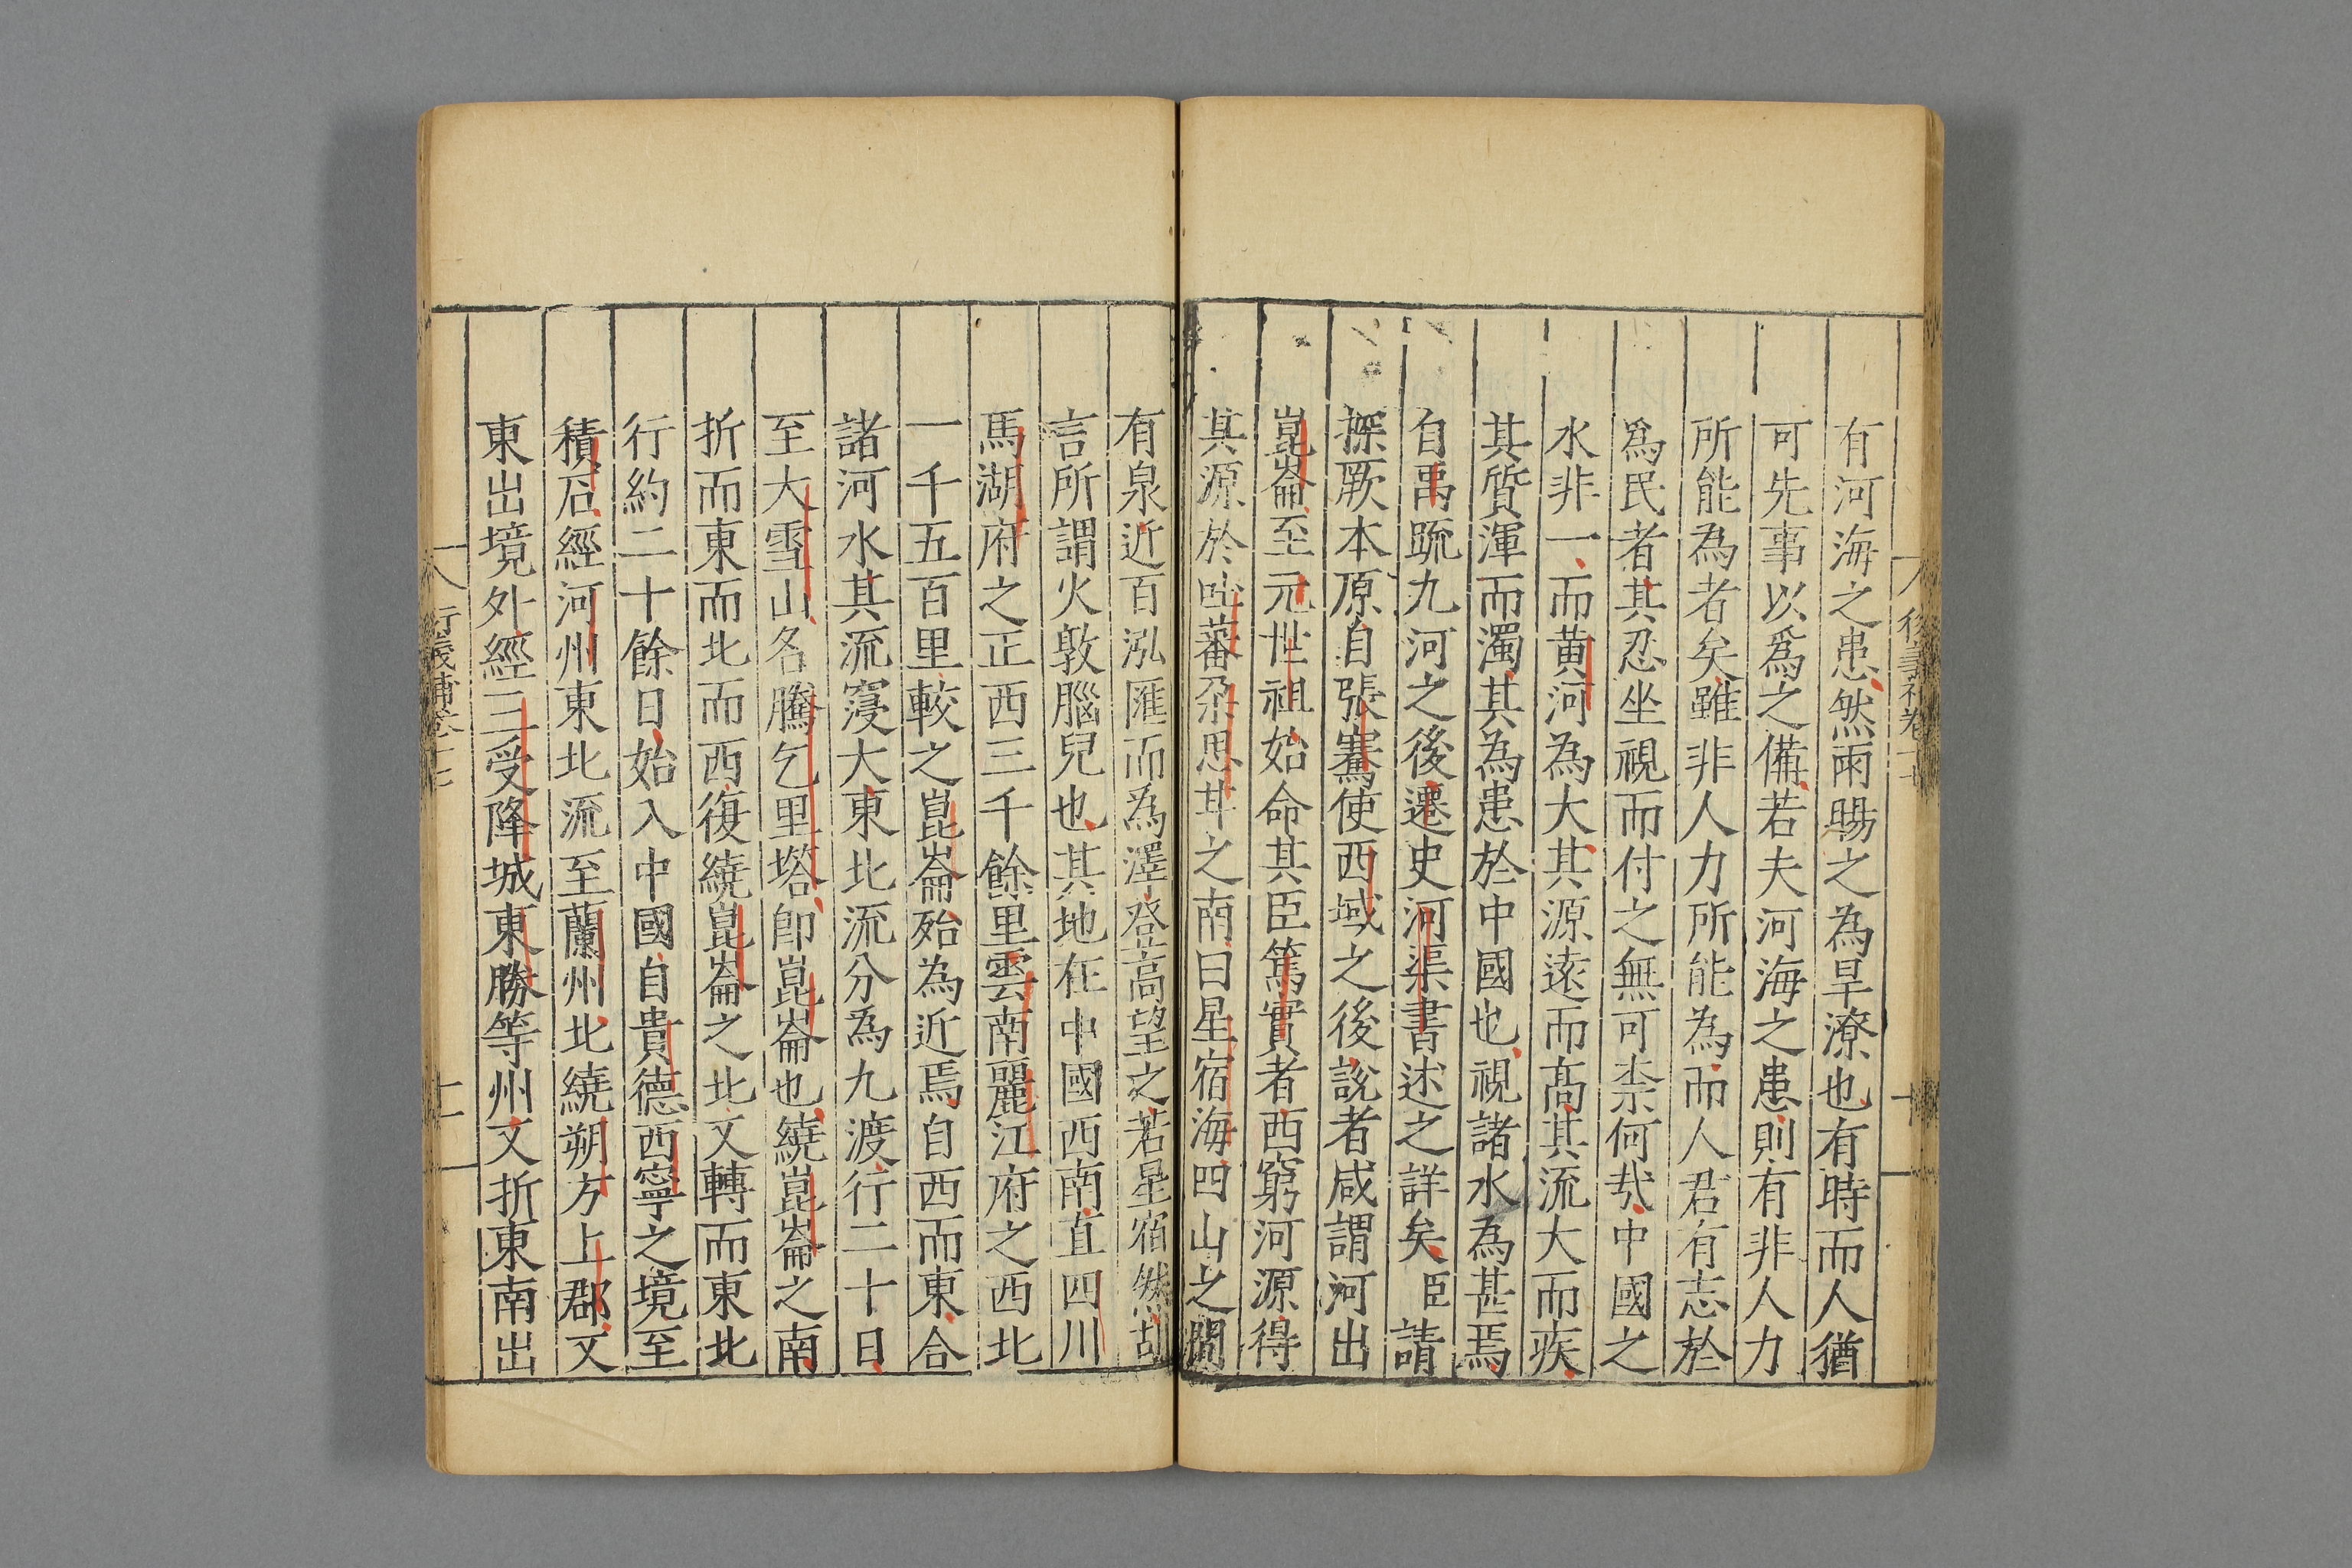 有河海之患然雨暘之為旱潦也有時而人猶
可先事以爲之備若夫河海之患則有非人力
所能為者矣雖非人力所能為而人君有志於
爲民者其忍坐視而付之無可柰何㢤中國之
水非一而黄河為大其源遠而髙其流大而疾
其質渾而濁其為患於中國也視諸水為甚焉
自禹䟽九河之後遷史河渠書述之詳矣臣請
探厥本原自張騫使西域之後說者咸謂河出
崑崙至元世祖始命其臣篤實者西窮河源得
其源於吐蕃朶思甘之南曰星宿海四山之間
有泉近百泓匯而為澤登高望之若星宿然胡
言所謂火敦腦兒也其地在中國西南直四川
馬湖府之正西三千餘里雲南麗江府之西北
一千五百里較之崑崙殆為近焉自西而東合
諸河水其流寖大東北流分為九渡行二十日
至大雪山名騰乞里塔卽崑崙也繞崑崙之南
折而東而北而西復繞崑崙之北又轉而東北
行約二十餘日始入中國自貴德西寧之境至
積石經河州東北流至蘭州北繞朔方上郡又
東出境外經三受降城東勝等州又折東南出
衍義補卷十七
十一